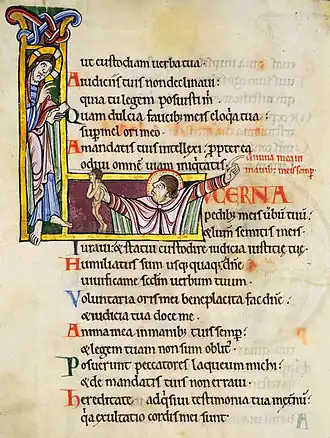 ut custodiam uerba tua
A iudiciis tuis non declinaui:
quia tu legem posuisti m̅
Quam dulcia faucib; meis eloq̅a tua:
sup mel ori meo.
A mandatis tuis intellexi: ꝓpterea
odiui omnē uiam iniq̅tatis.
Anima mea in
manib; meis semp̅.
LUCERNA
pedib; meis ūbū tuū:
& lum̅ semitis meis
Iuraui: & statui custodire iudicia iustitię tuę.
Humiliatus sum usq; quaq; dn̅e
uiuifica me scdm̅ uerbum tuum.
Voluntaria oris mei beneplacita fac dn̅e:
& iudicia tua doce me.
Anima mea in manib; tuis semp̅:
& legem tuam non sum oblit̅.
Posuerunt peccatores laqueum michi:
& de mandatis tuis non erraui.
Hereditate adq̅siui testimonia tua in et̅nū:
q̅a exultatio cordis mei sunt